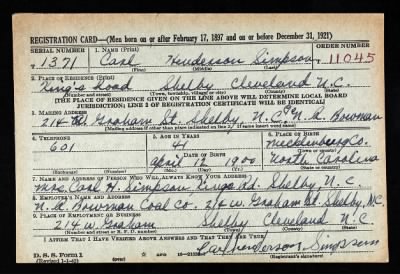 REGISTRATION CARD—(Men born on or after February 17, 1897 and on or before December 31, 1921)
SERIAL NUMBER 1. NAME (Print) ORDER NUMBER
1371 Carl Henderson Simpson 11045
(First) (Middle) (Last)
2. PLACE OF RESIDENCE (Print)
King's Road Shelby Cleveland N.C.
(Number and street) (Town, township, village, or city) (County) (State)
[THE PLACE OF RESIDENCE GIVEN ON THE LINE ABOVE WILL DETERMINE LOCAL BOARD
JURISDICTION; LINE 2 OF REGISTRATION CERTIFICATE WILL BE IDENTICAL]
3. MAILING ADDRESS
214 W. Graham St. Shelby, N.C. % N.M. Bowman
[Mailing address if other than place indicated on line 2. If same insert word same]
4. TELEPHONE 5. AGE IN YEARS 6. PLACE OF BIRTH
601 41 Mecklenburg Co.
DATE OF BIRTH (Town or county)
April 12 1900 North Carolina
(Mo.) (Day) (Yr.) (State or country)
7. NAME AND ADDRESS OF PERSON WHO WILL ALWAYS KNOW YOUR ADDRESS
Mrs. Carl H. Simpson Kings Rd. Shelby, N.C.
8. EMPLOYER'S NAME AND ADDRESS
N.M. Bowman Coal Co. 214 W. Graham St. Shelby, N.C.
9. PLACE OF EMPLOYMENT OR BUSINESS
214 W. Graham Shelby Cleveland N.C.
(Number and street or R. F. D. number) (Town) (County) (State)
I AFFIRM THAT I HAVE VERIFIED ABOVE ANSWERS AND THAT THEY ARE TRUE.
D. S. S. Form 1 Carl Henderson Simpson
(Revised 1-1-42) (over) (Registrant's signature)